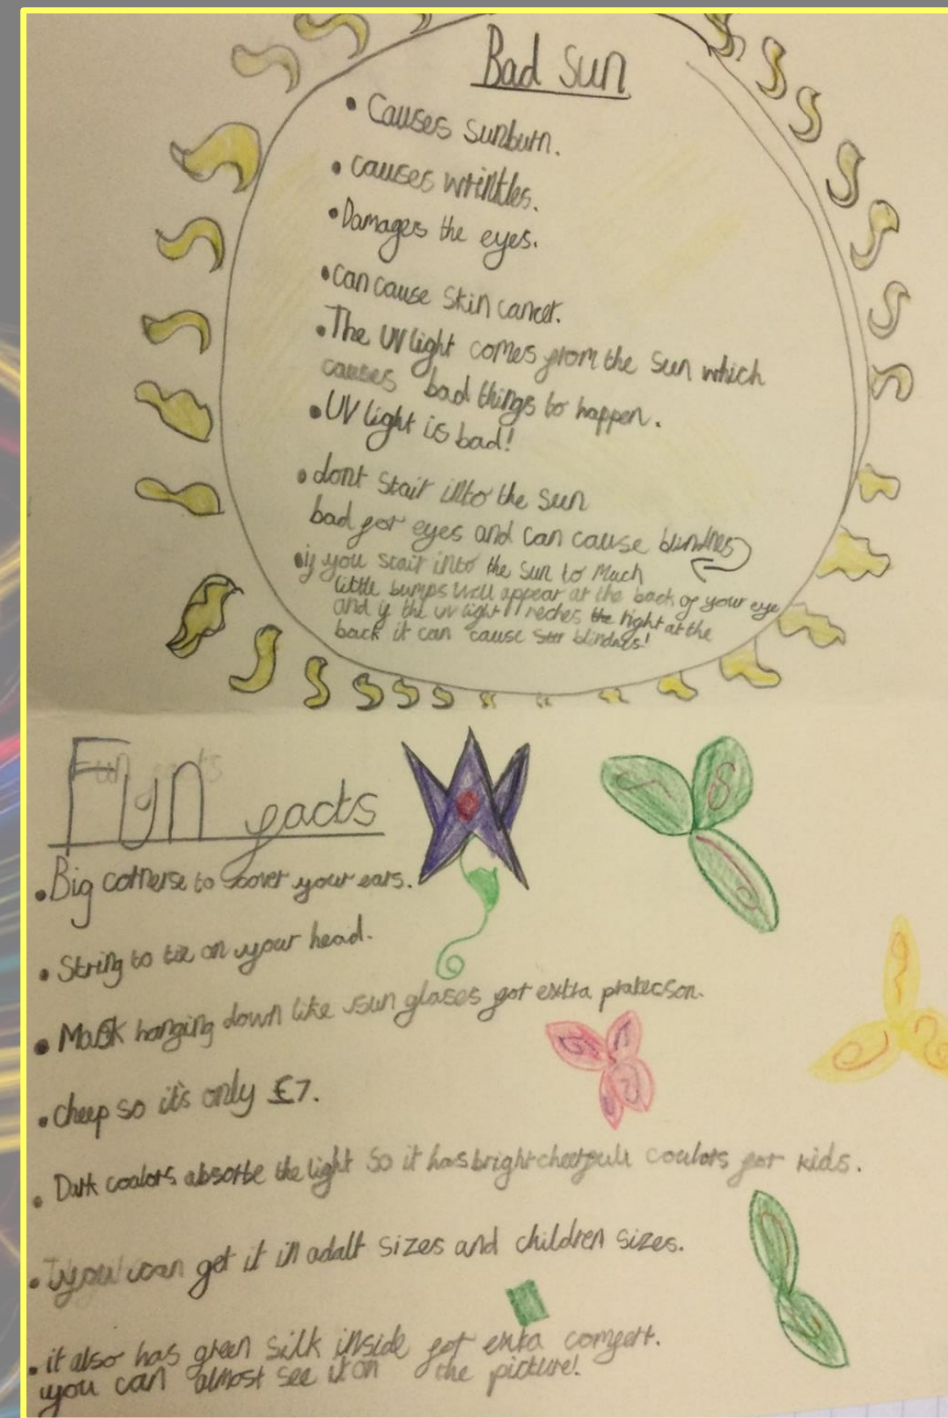 Bad Sun
• Causes sunburn.
• causes wrinkles.
• Damages the eyes.
• Can cause skin cancer.
• The UV light comes from the sun which
causes bad things to happen.
• UV light is bad!
• dont stair into the sun
bad for eyes and can cause blindnes
• if you stair into the sun to Much
little bumps will appear at the back of your eye
and if the uv light reches the right at the
back it can cause blindnes!
Fun facts
• Big cornerse to cover your ears.
• String to tie on your head.
• Mask hanging down like sun glases for extra protecson.
• cheep so it's only £7.
• Dark coalors absorbe the light so it has bright cheerfull coulors for kids.
• you can get it in adalt sizes and children sizes.
• it also has green silk inside for exta comfert.
you can almost see it on the picture!